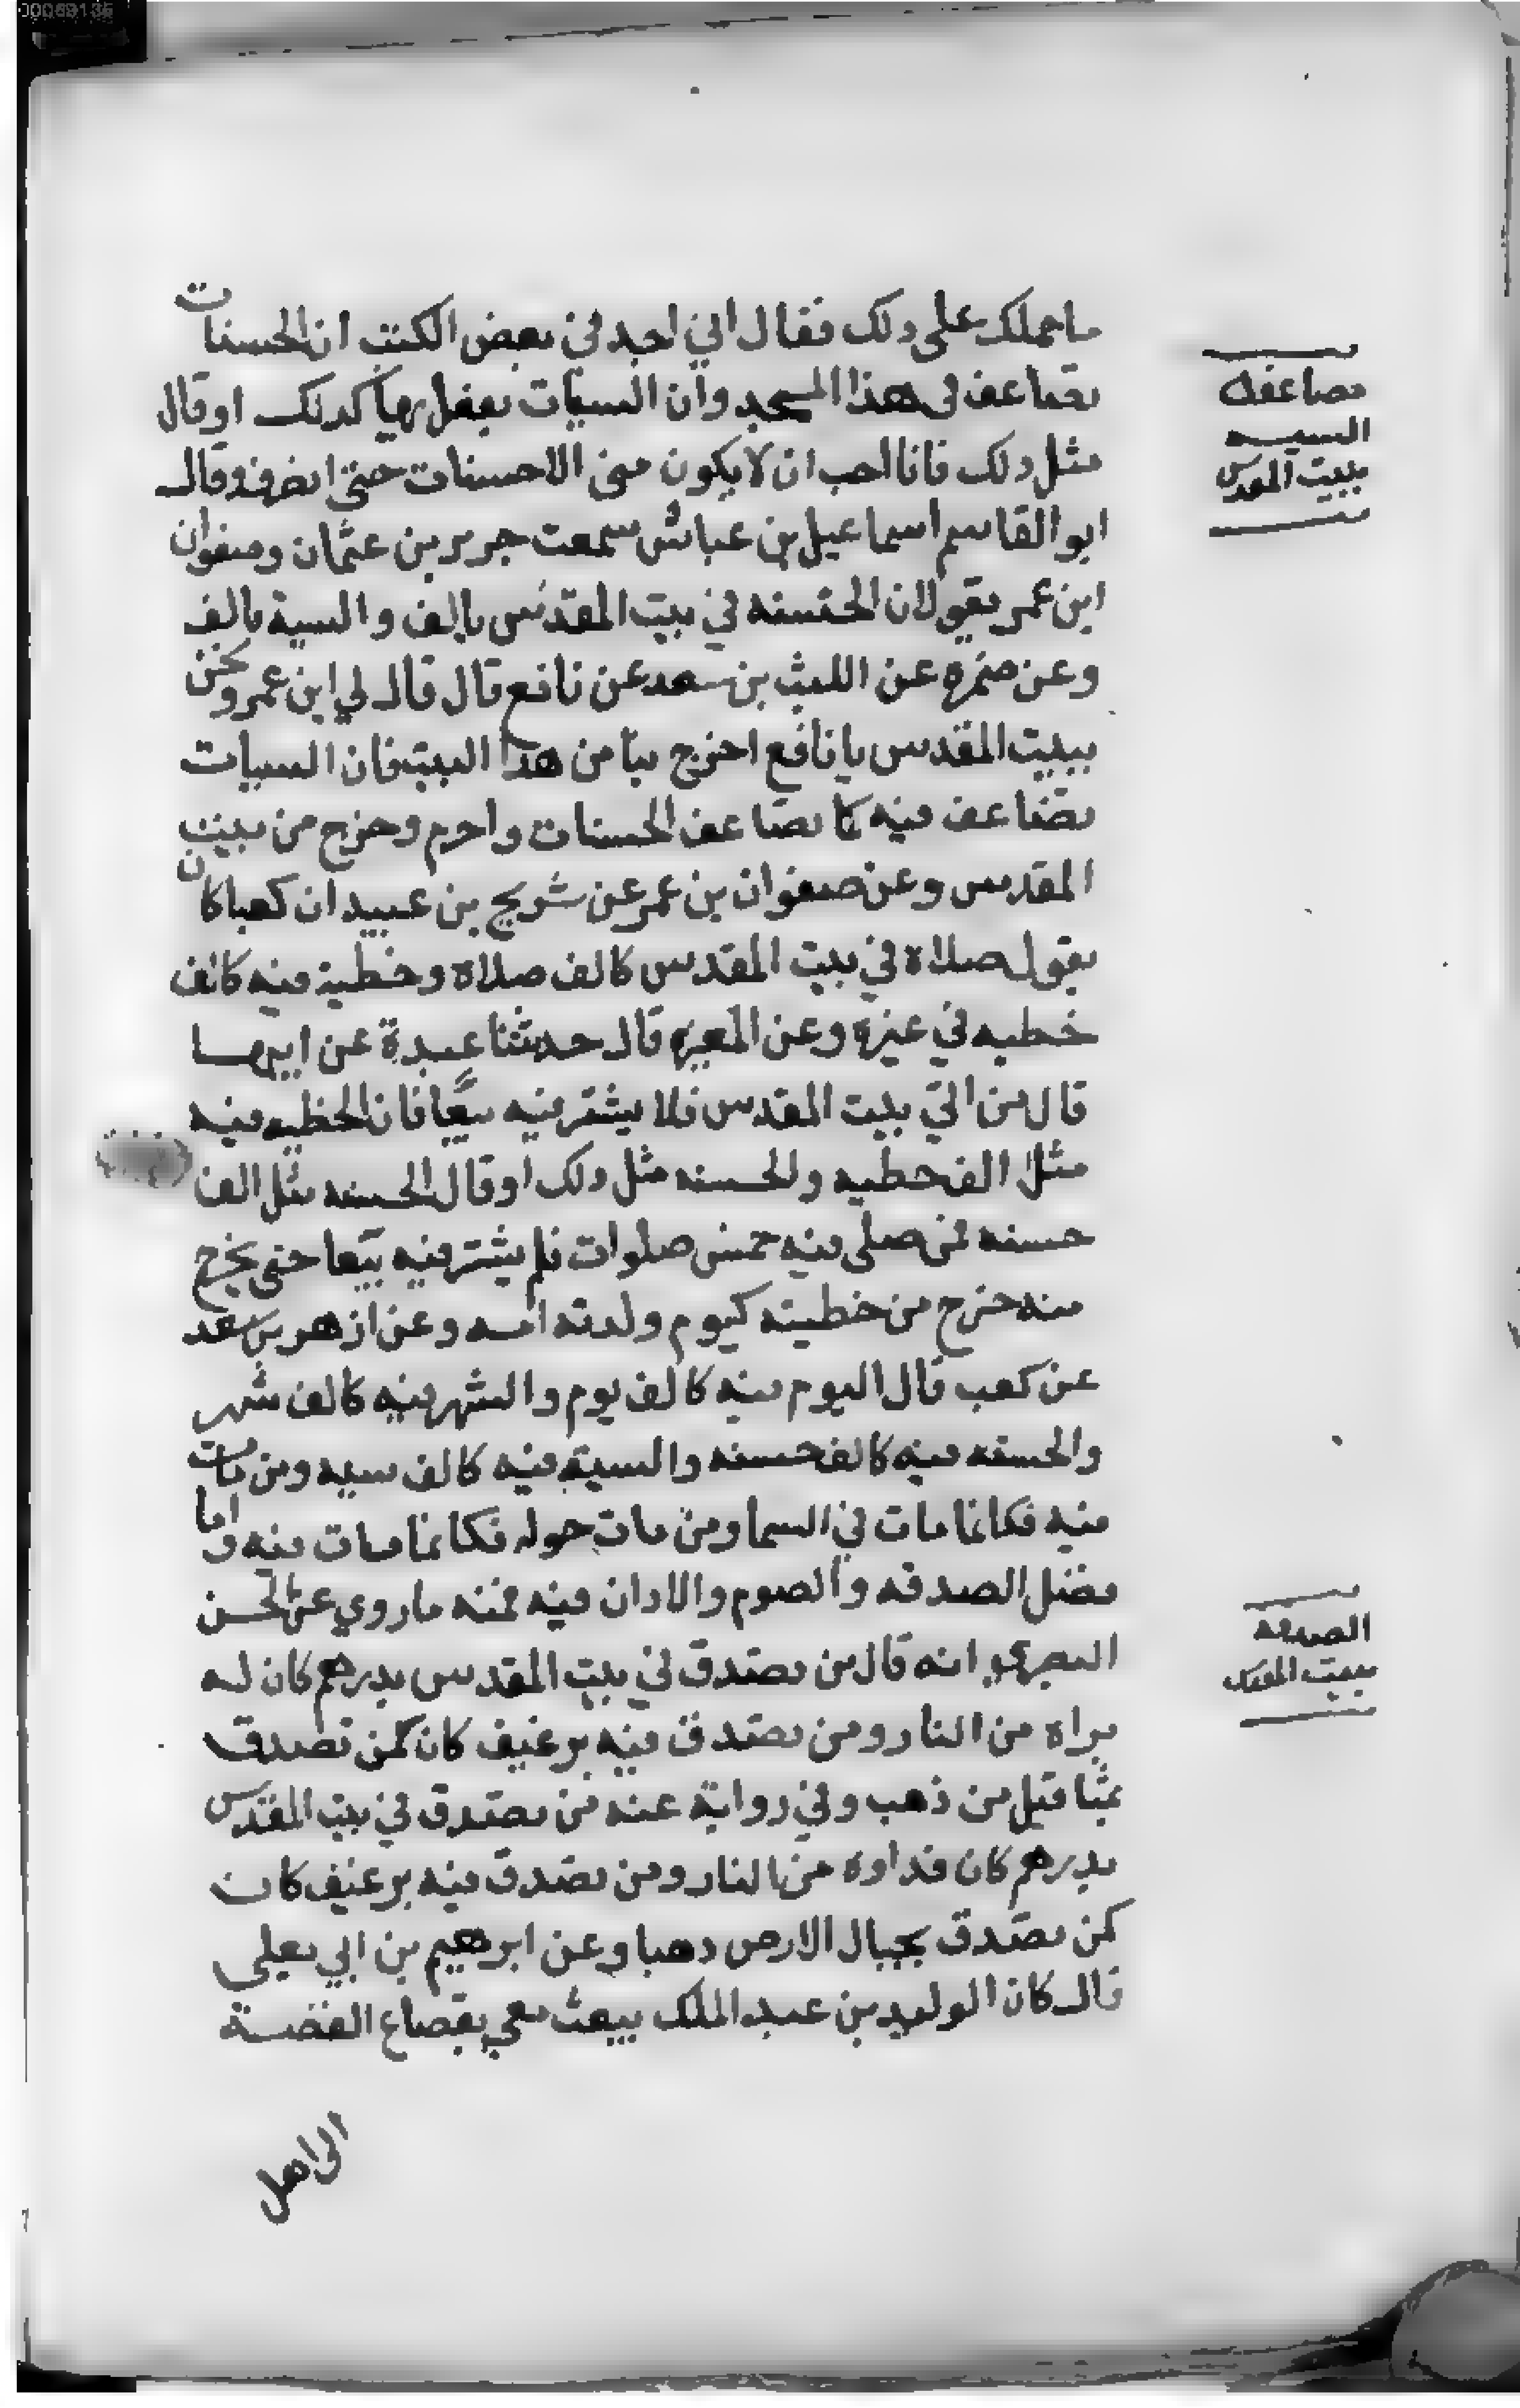 ما حملك على دلك فقال اني اجد في بعض الكتب ان الحسنات
تضاعف في هذا المسجد وان السيات يفعل بها كدلك او قال
مثل دلك فانا احب ان لا يكون مني الا حسنات حتى انصرف وقال
ابو القاسم اسماعيل بن عياش سمعت جرير بن عثمان وصفوان
ابن عمر يقولان الحسنه في بيت المقدس بالف والسية بالف
وعن ضمره عن الليث بن سعد عن نافع قال قال لي ابن عمر ونحن
ببيت المقدس يا نافع اخرج بنا من هدا البيت فان السيات
تضاعف فيه كما تضاعف الحسنات واحرم وخرج من بيت
المقدس وعن صفوان بن عمر عن شريح بن عبيد ان كعبا كان
يقول صلاة في بيت المقدس كالف صلاة وخطية فيه كالف
خطيه في غيره وعن المغيره قال حدثتنا عبدة عن ابيها
قال من اتى بيت المقدس فلا يشتر فيه بيعا فان الخطيه فيه
مثل الف خطيه والحسنه مثل دلك او قال الحسنه مثل الف
حسنه فمن صلى فيه خمس صلوات فلم يشتر فيه بيعا حتى يخرج
منه خرج من خطيته كيوم ولدته امه وعن ازهر بن سعد
عن كعب قال اليوم فيه كالف يوم والشهر فيه كالف شهر
والحسنه فيه كالف حسنه والسية فيه كالف سيه ومن مات
فيه فكانما مات في السما ومن مات حوله فكانما مات فيه واما
فضل الصدقه والصوم والادان فيه فمنه ما روي عن الحسن
البصري انه قال من تصدق في بيت المقدس بدرهم كان له
براه من النار ومن تصدق فيه برغيف كان كمن تصدق
بمثاقيل من ذهب وفي رواية عنه من تصدق في بيت المقدس
بدرهم كان فداوه من النار ومن تصدق فيه برغيف كان
كمن تصدق بجبال الارض دهبا وعن ابرهيم بن ابي يعلى
قال كان الوليد بن عبد الملك يبعث معي بقصاع الفضة
الى اهل
مضاعفة
السيه
ببيت المقدس
الصدقه
ببيت المقدس
00069135